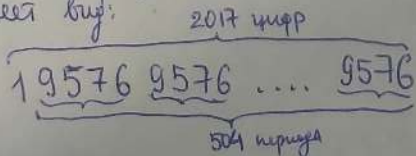 еет вид: 2017 цифр
1 9576 9576 .... 9576
504 периода